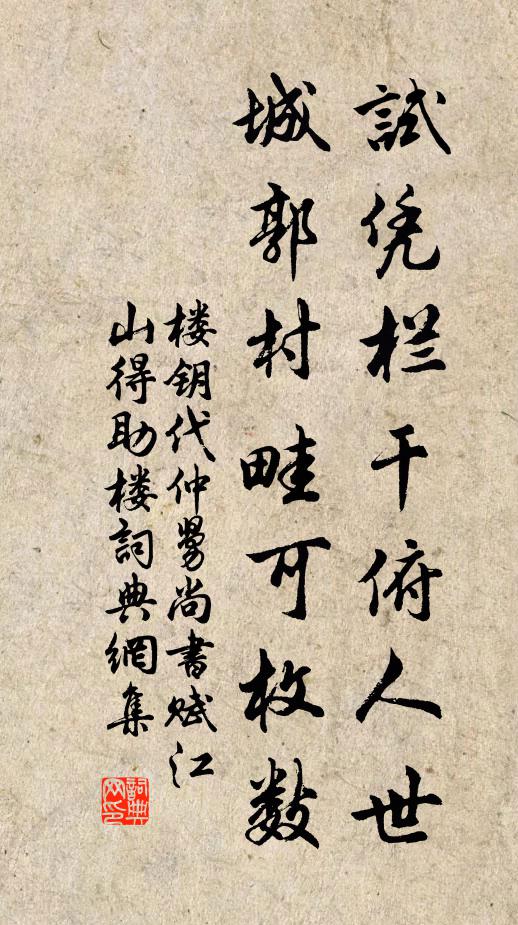 試凭栏干俯人世
城郭村畦可枚数
楼钥代仲舅尚書赋江
山得助楼詞典網集
詞典网印